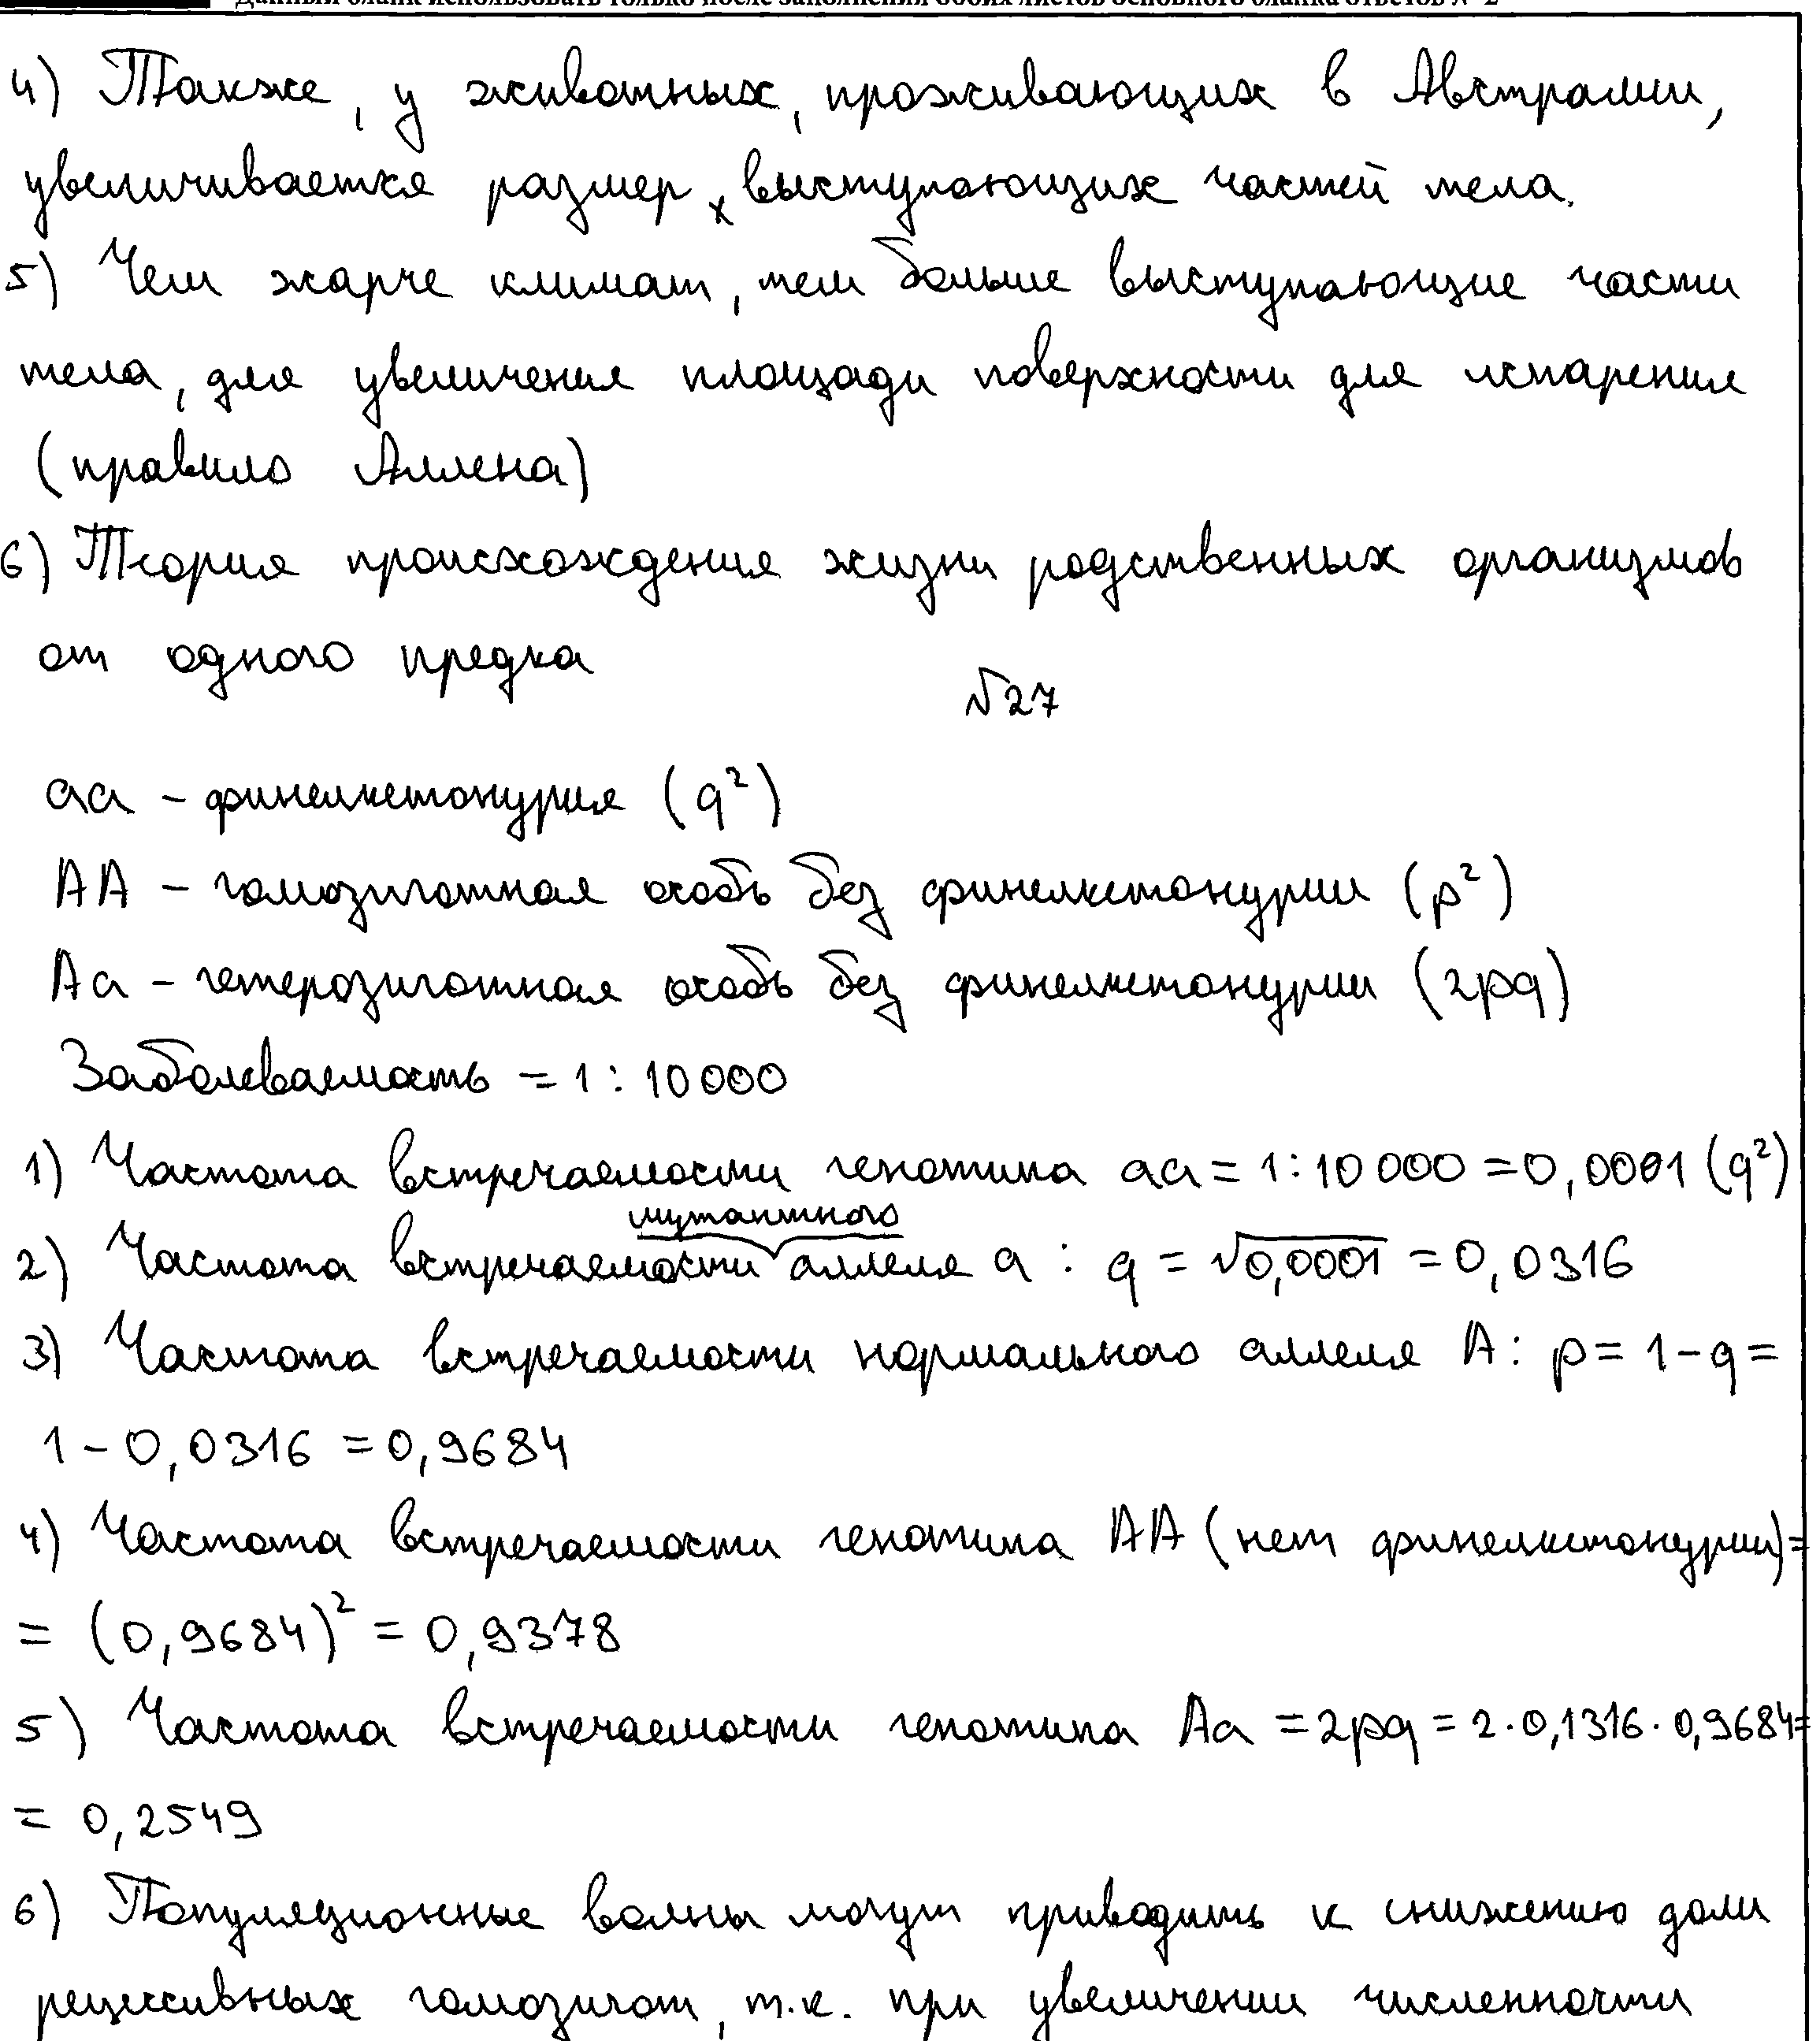 Данный бланк использовать только после заполнения обоих листов основного бланка ответов № 2
4) Также, у животных, проживающих в Австралии,
увеличивается размер выступающих частей тела.
5) Чем жарче климат, тем больше выступающие части
тела, для увеличения площади поверхности для испарения
(правило Аллена)
6) Теория происхождения жизни родственных организмов
от одного предка
№27
aa – финелкетонурия (q²)
AA – гомозиготная особь без финелкетонурии (p²)
Aa – гетерозиготная особь без финелкетонурии (2pq)
Заболеваемость = 1 : 10 000
1) Частота встречаемости генотипа aa = 1 : 10 000 = 0,0001 (q²)
мутантного
2) Частота встречаемости аллеля a : q = √0,0001 = 0,0316
3) Частота встречаемости нормального аллеля A: p = 1 – q =
1 – 0,0316 = 0,9684
4) Частота встречаемости генотипа AA (нет финелкетонурии) =
= (0,9684)² = 0,9378
5) Частота встречаемости генотипа Aa = 2pq = 2 · 0,1316 · 0,9684 =
= 0,2549
6) Популяционные волны могут приводить к снижению доли
рецессивных гомозигот, т.к. при увеличении численности